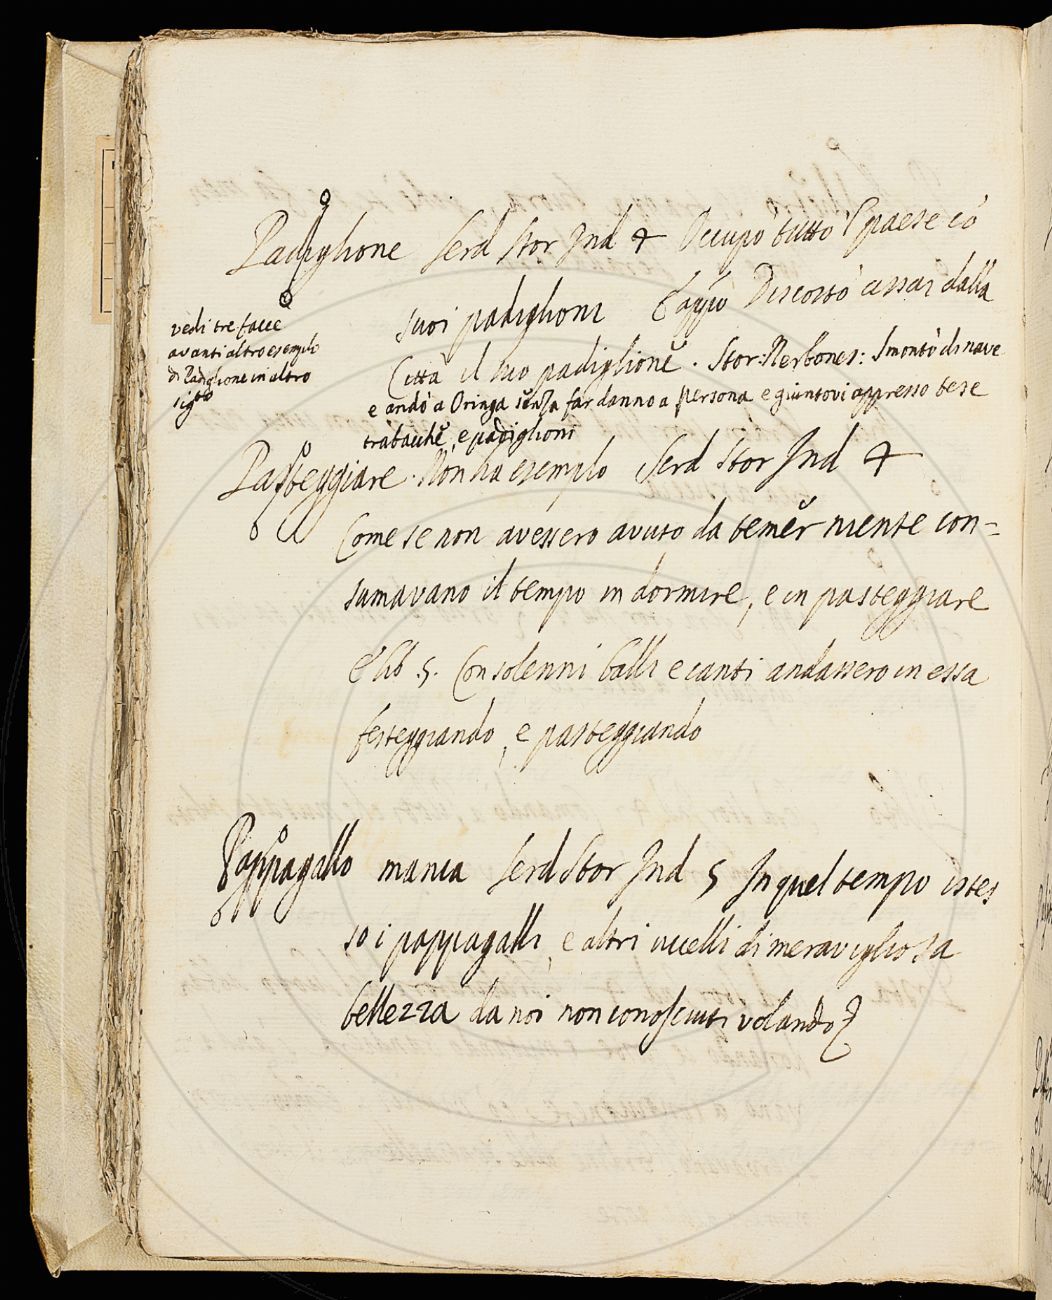 Padiglione Serd Stor Ind 4 Occupò tutto 'l paese cō
suoi padiglioni E appiù Discostò assai dalla
Città il suo padiglione. Stor: Nerbones: Smontò di nave
e andò a Oringa senza far danno a persona e giuntovi appresso tese
trabacche, e padiglioni
vedi tre facce
avanti altro esemplo
di Padiglione in altro
sigto
Pasteggiare. Non ha esemplo Serd Stor Ind 4
Come se non avessero avuto da temer niente con=
sumavano il tempo in dormire, e in pasteggiare
E lib. 5. Con solenni balli e canti andassero in essa
festeggiando, e pasteggiando
Pappagallo manca Serd Stor Ind 5 In quel tempo istes
so i pappagalli, e altri uccelli di meravigliosa
bellezza da noi non conosciuti volando